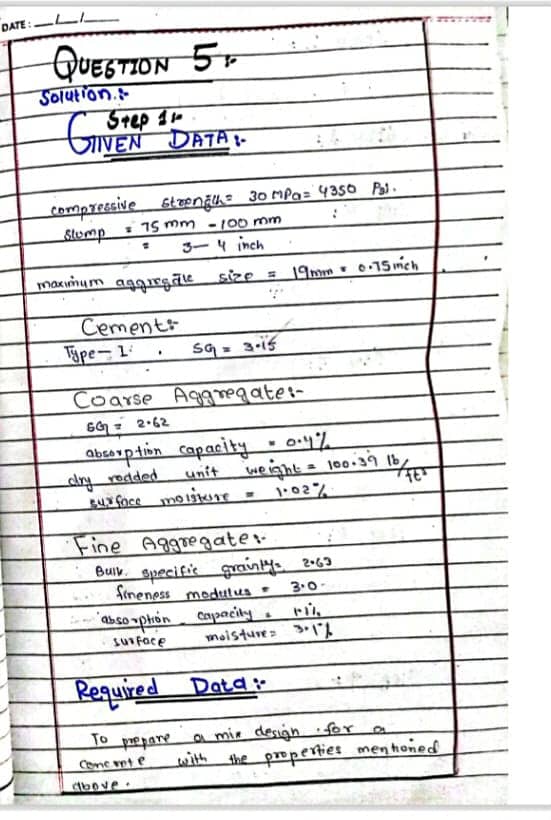 DATE: / /
QUESTION 5:-
Solution:-
Step 1:-
GIVEN DATA:-
compressive strength = 30 MPa = 4350 Psi.
slump = 75 mm - 100 mm
= 3-4 inch
maximum aggregate size = 19mm = 0.75 inch
Cement:-
Type-I. SG = 3.15
Coarse Aggregate:-
SG = 2.62
absorption capacity = 0.4%
dry rodded unit weight = 100.39 lb/ft³
surface moisture = 1.02%
Fine Aggregate:-
Bulk specific gravity = 2.63
fineness modulus = 3.0
absorption capacity = 1.1%
surface moisture = 3.1%
Required Data:-
To prepare a mix design for a
Concrete with the properties mentioned
above.